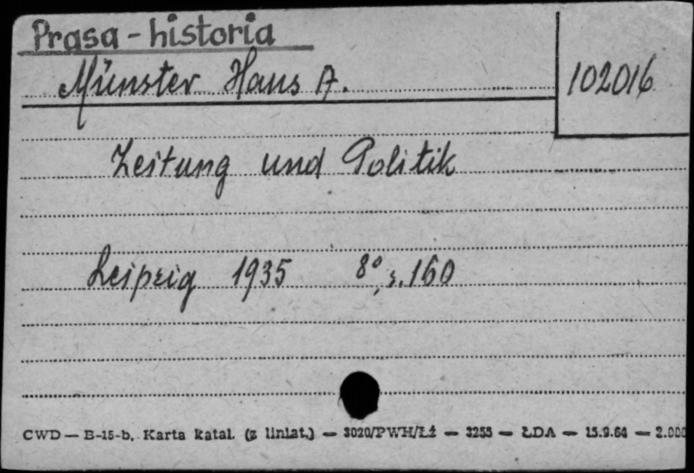 Prasa - historia
Münster Hans A.
102016
Zeitung und Politik
Leipzig 1935 8°, s. 160
CWD — B-15-b. Karta katal. (z liniat.) — 3020/PWH/Łź — 3255 — ŁDA — 15.9.64 — 2.000